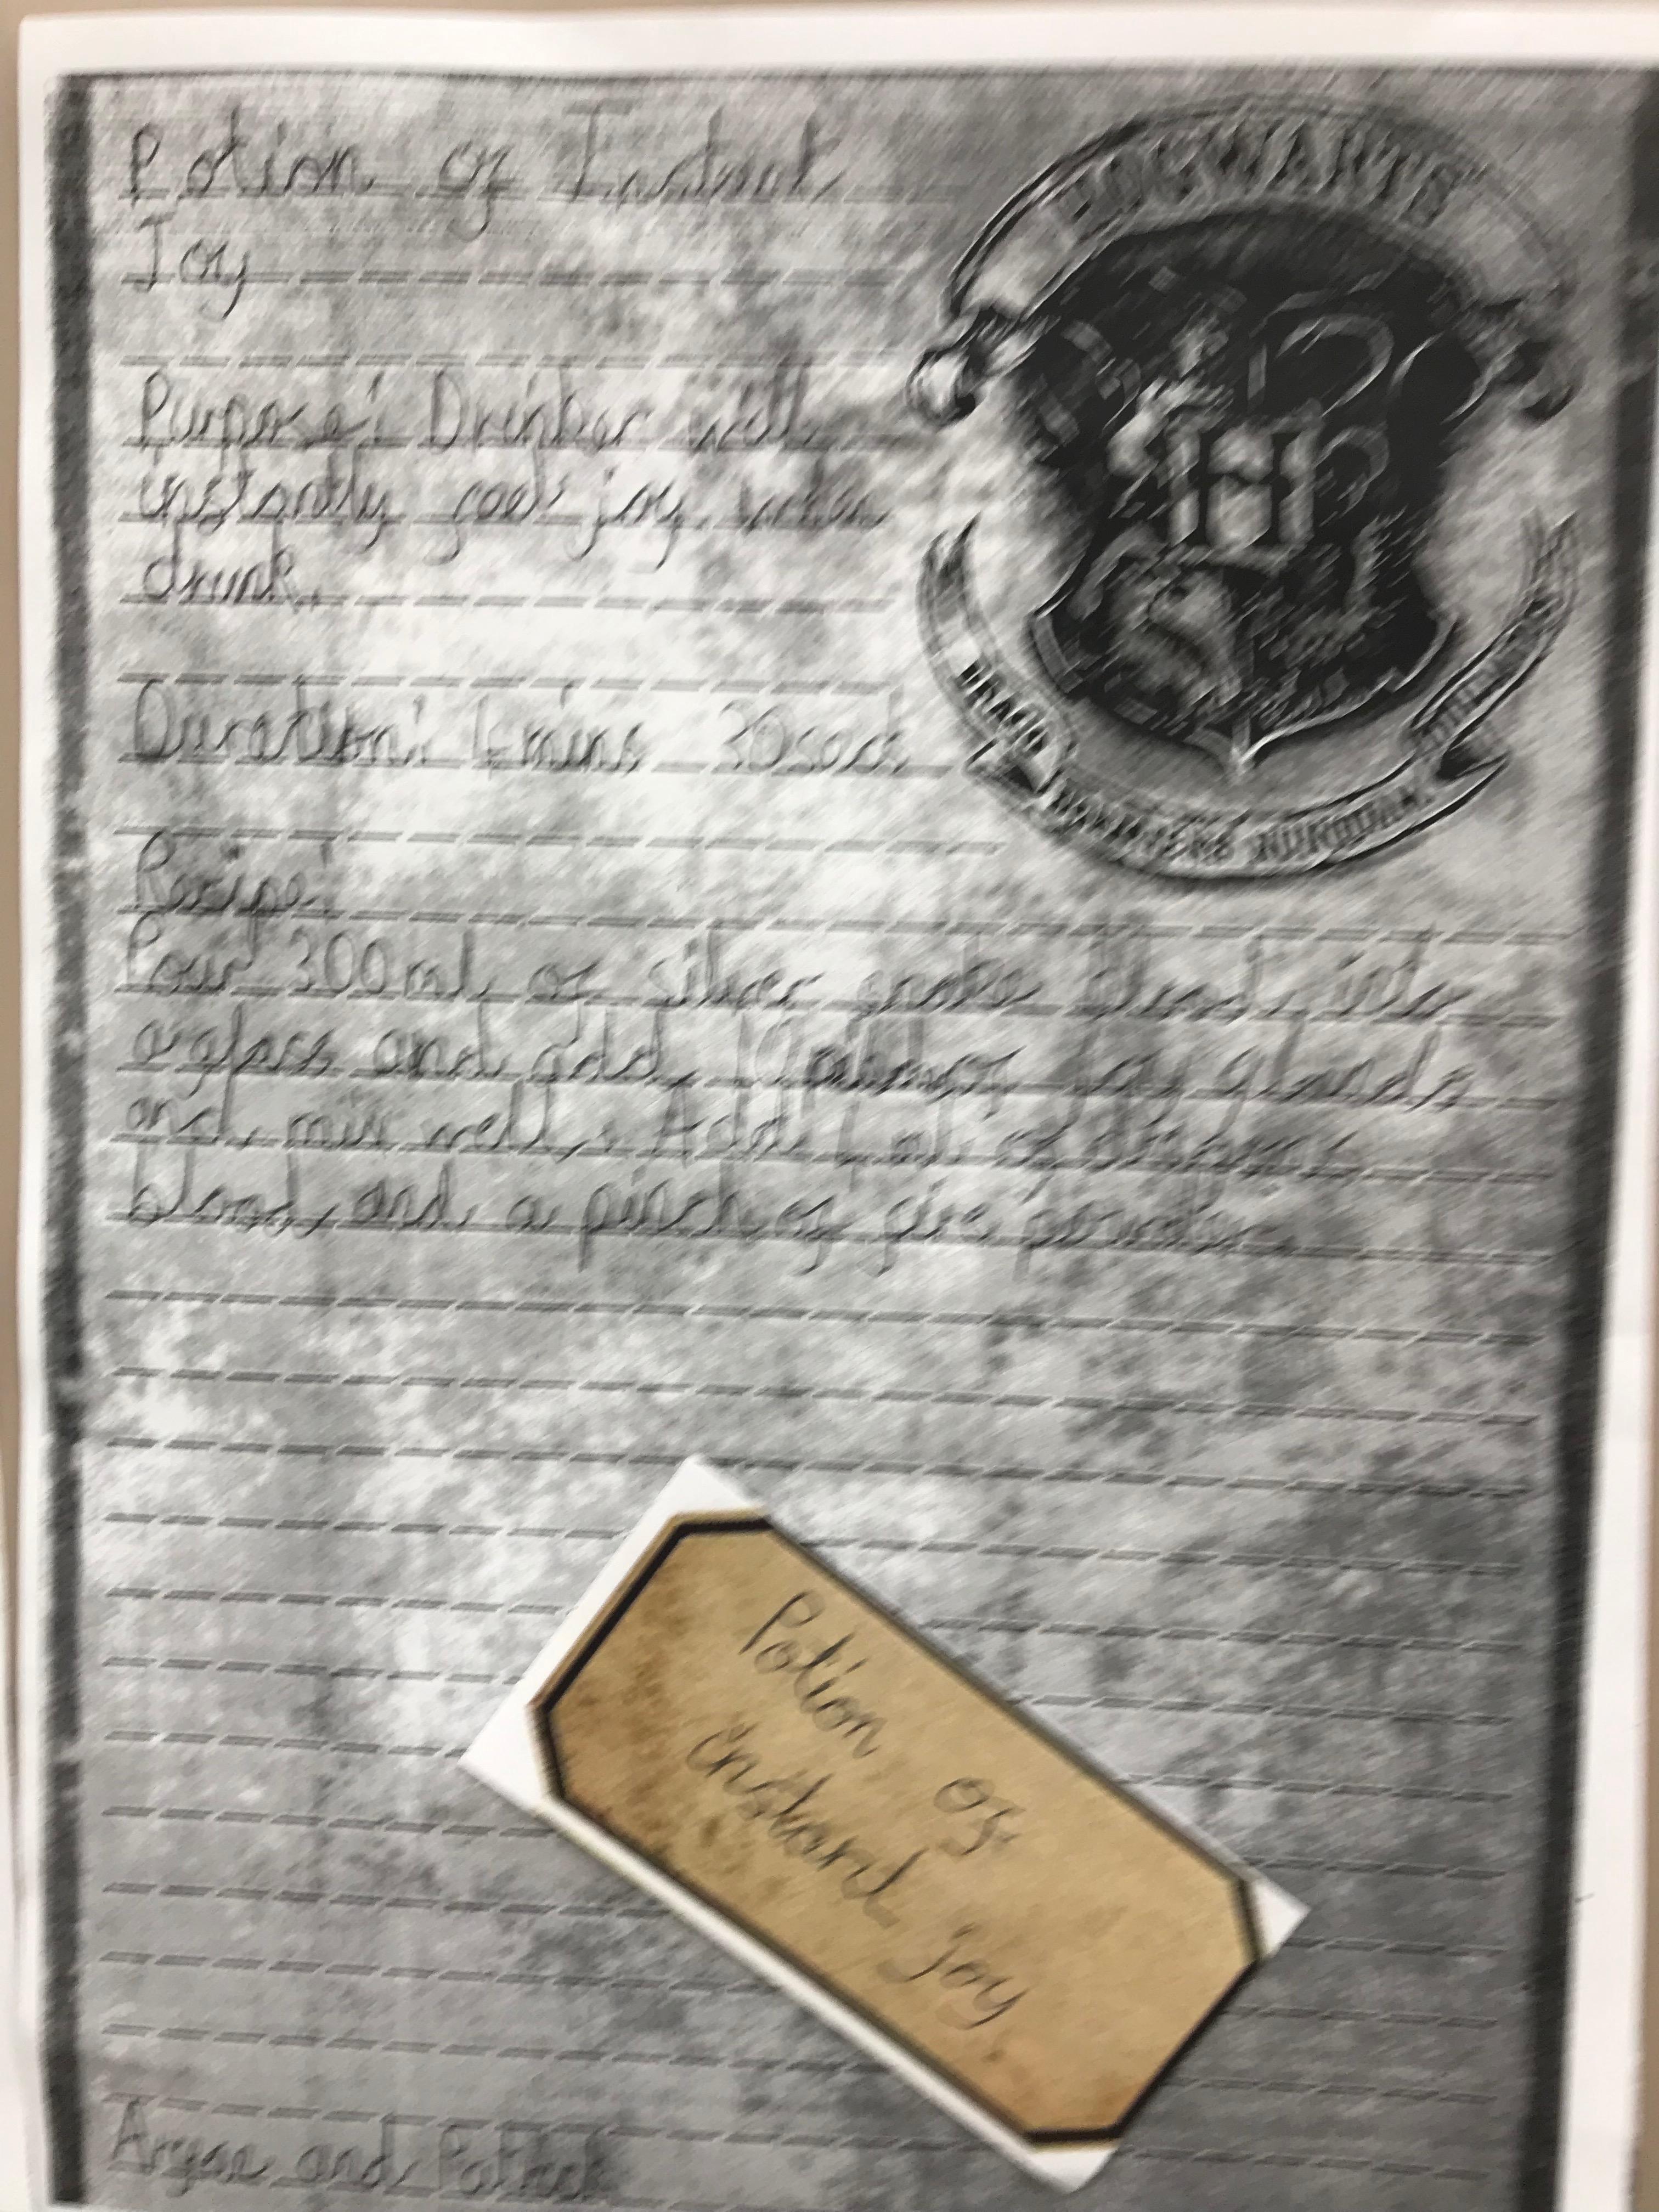 Potion of Instant
Joy
HOGWARTS
H
Purpose: Drinker will
instantly feel joy when
drunk.
Duration: mins 30secs
DRACO DORMIENS NUNQUAM
Recipe:
Pour 300ml of silver snake blood into
a glass and add of joy glands
and mix well. Add of dragons
blood and a pinch of fire powder
Potion of
instant joy
and Patrick